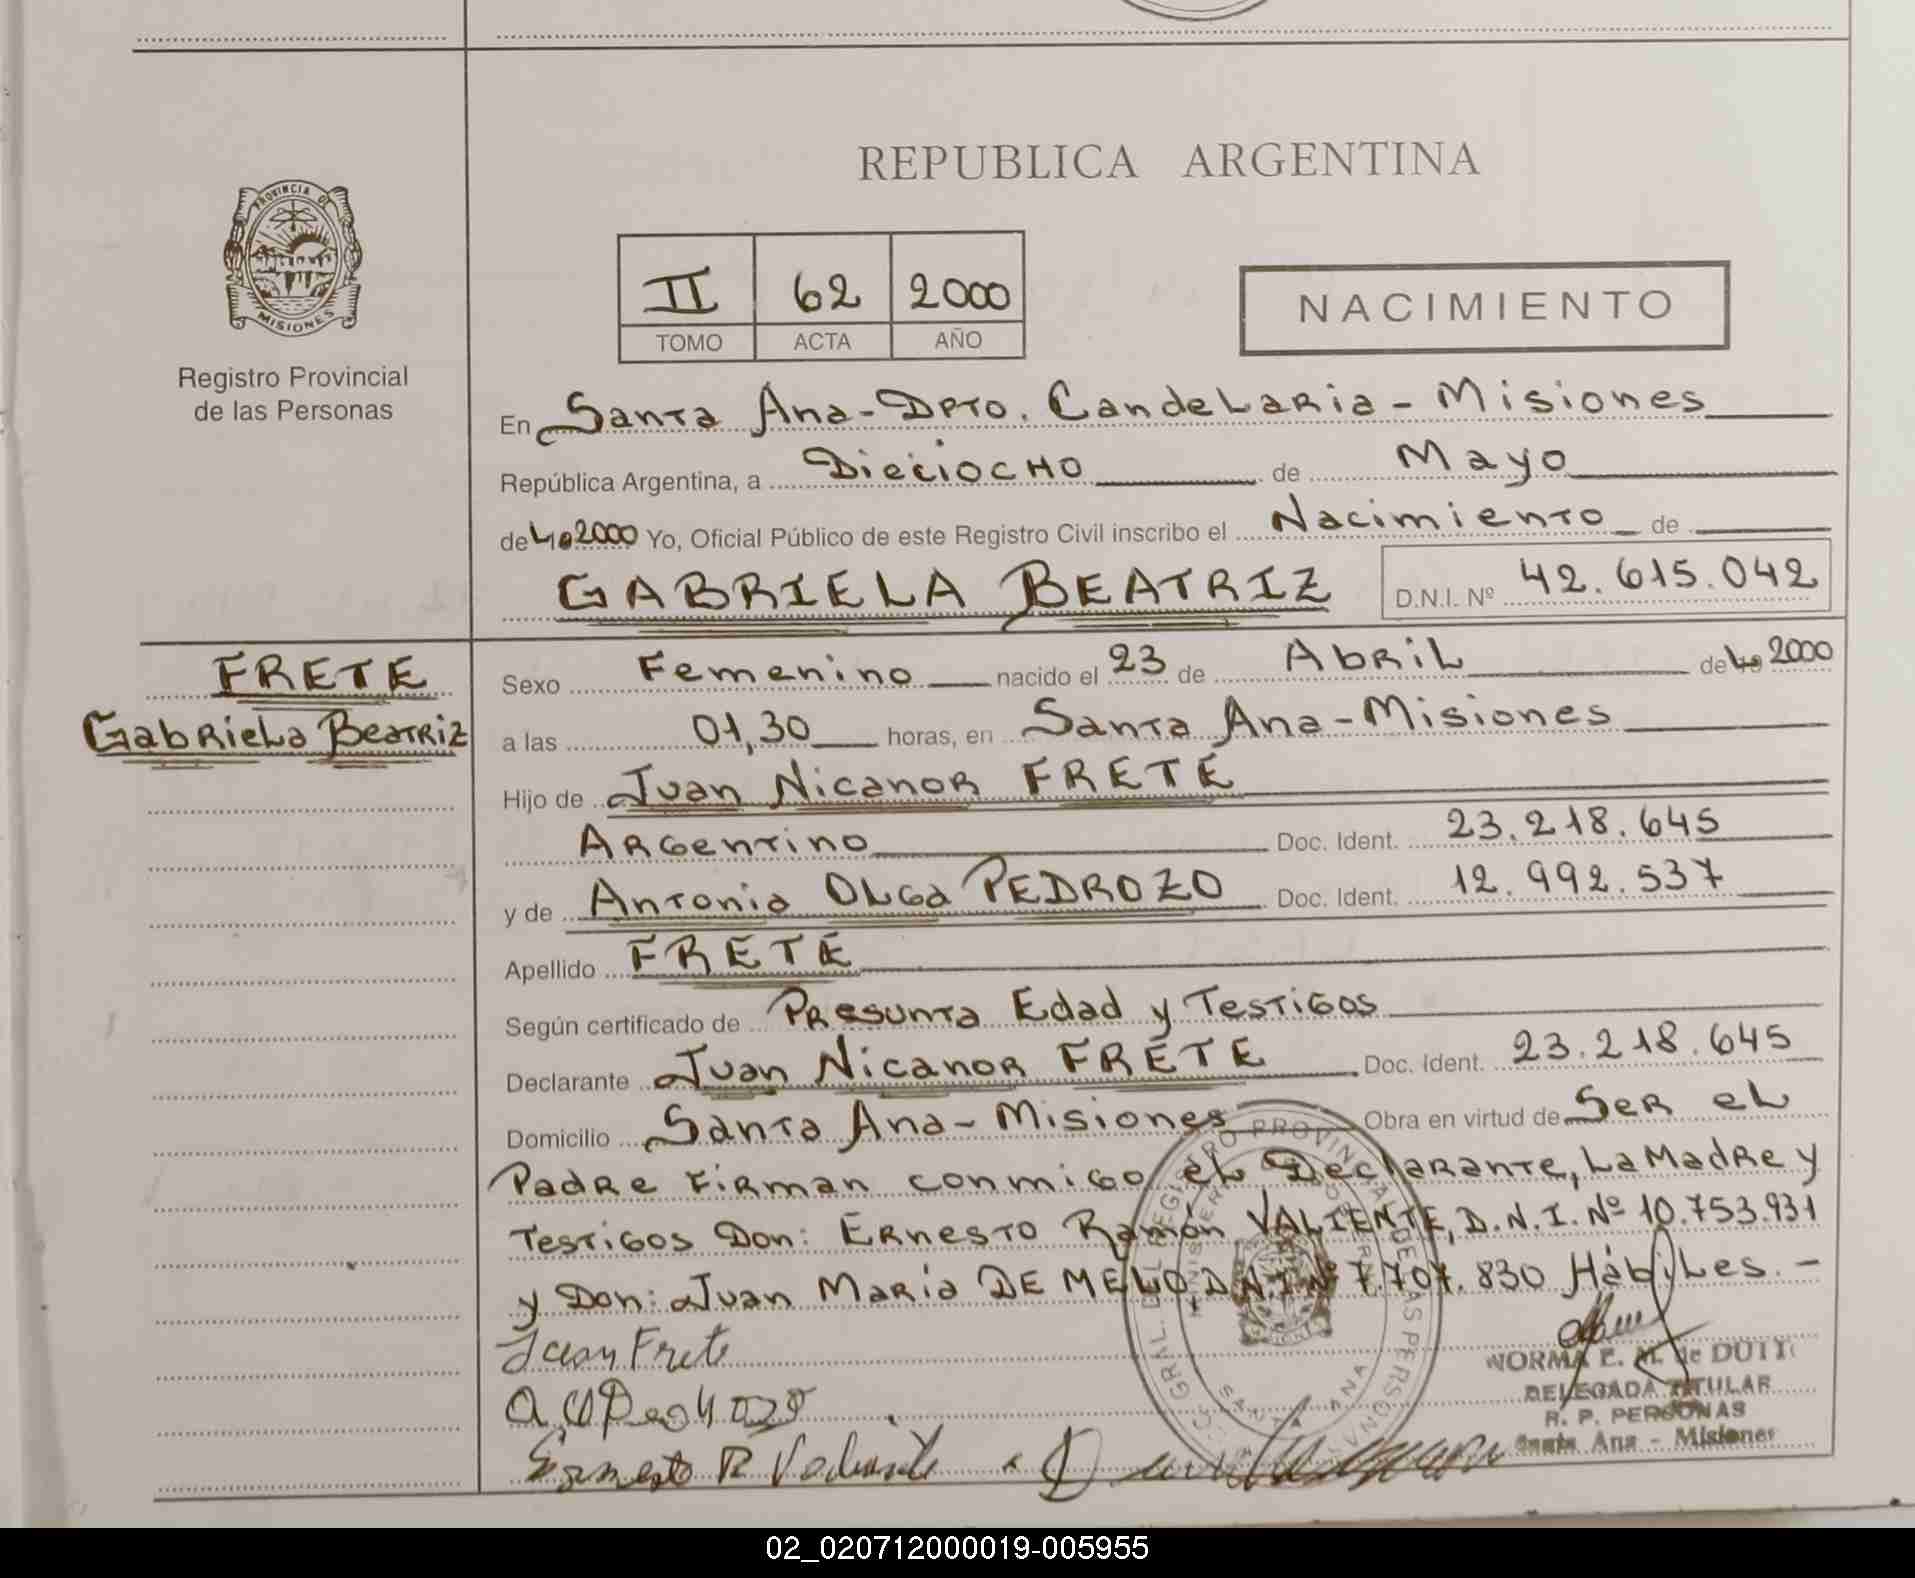 REPUBLICA ARGENTINA
PROVINCIA DE
MISIONES
Registro Provincial
de las Personas
II 62 2000
TOMO ACTA AÑO
NACIMIENTO
En Santa Ana - Dpto. Candelaria - Misiones
República Argentina, a Dieciocho de Mayo
de 2000 Yo, Oficial Público de este Registro Civil inscribo el Nacimiento de
GABRIELA BEATRIZ D.N.I. Nº 42.615.042
FRETE
Gabriela Beatriz
Sexo Femenino nacido el 23 de Abril de 2000
a las 01,30 horas, en Santa Ana - Misiones
Hijo de Juan Nicanor FRETE
Argentino Doc. Ident. 23.218.645
y de Antonia Olga PEDROZO Doc. Ident. 12.992.537
Apellido FRETE
Según certificado de Presunta Edad y Testigos
Declarante Juan Nicanor FRETE Doc. Ident. 23.218.645
Domicilio Santa Ana - Misiones Obra en virtud de Ser el
Padre Firman conmigo el Declarante, La Madre y
Testigos Don: Ernesto Ramón VALIENTE, D.N.I. Nº 10.753.931
y Don: Juan María DE MELO D.N.I Nº 7.707.830 Hábiles. -
Juan Frete
Ernesto R Valiente
NORMA E. M. de DUTT
DELEGADA TITULAR
R. P. PERSONAS
Santa Ana - Misiones
SANTA ANA
02_020712000019-005955